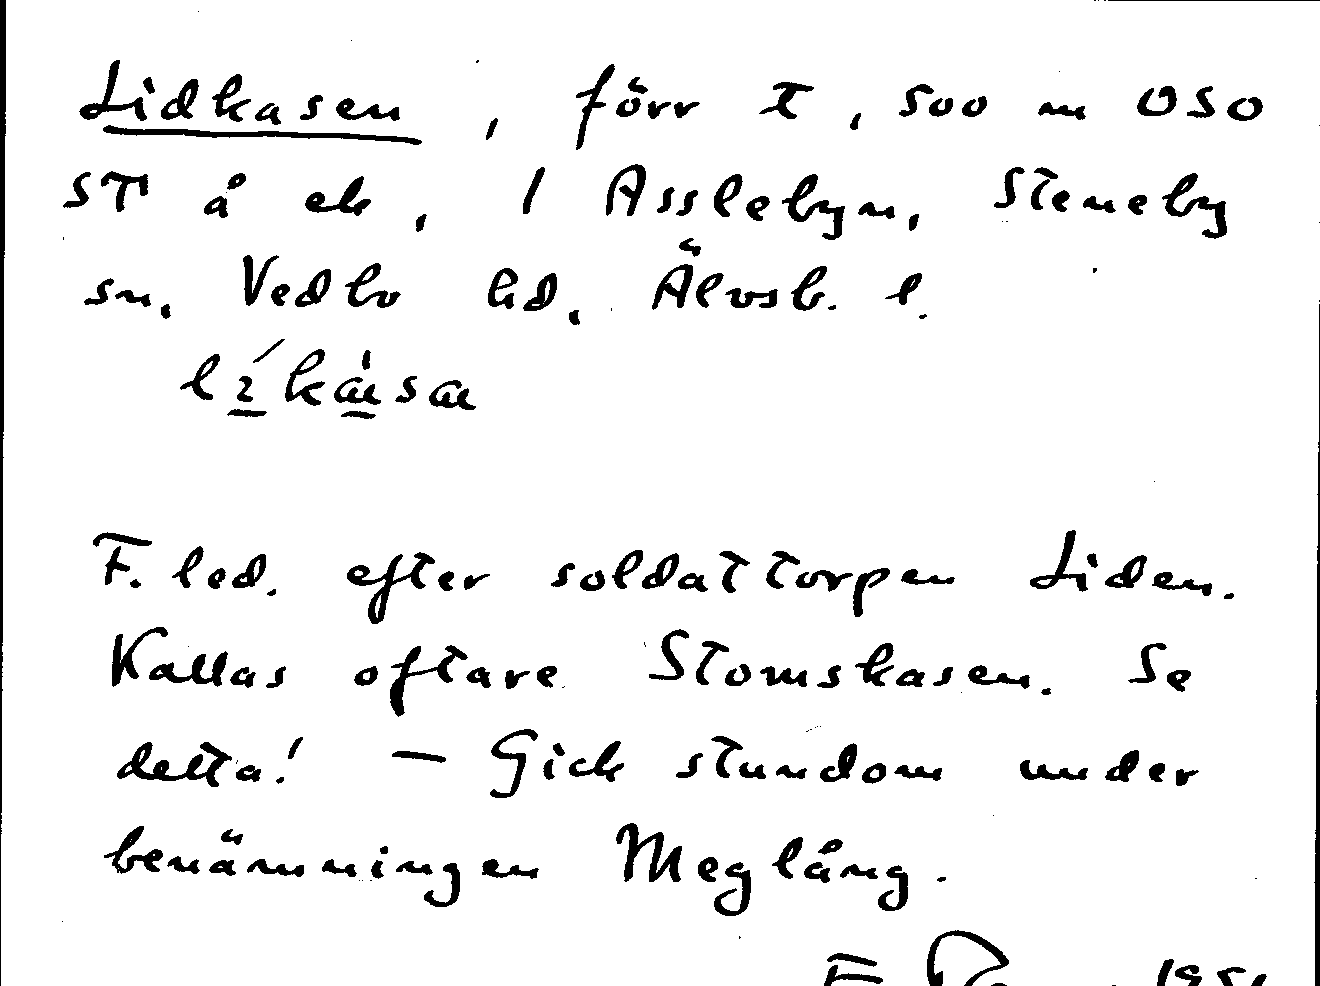 Lidkasen, förr t, 500 m OSO
ST å ek, 1 Asslebyn, Steneby
sn, Vedbo hd, Älvsb. l.
F. led. efter soldattorpen Liden.
Kallas oftare Stomskasen. Se
detta! — Gick stundom under
benämningen Meglång.